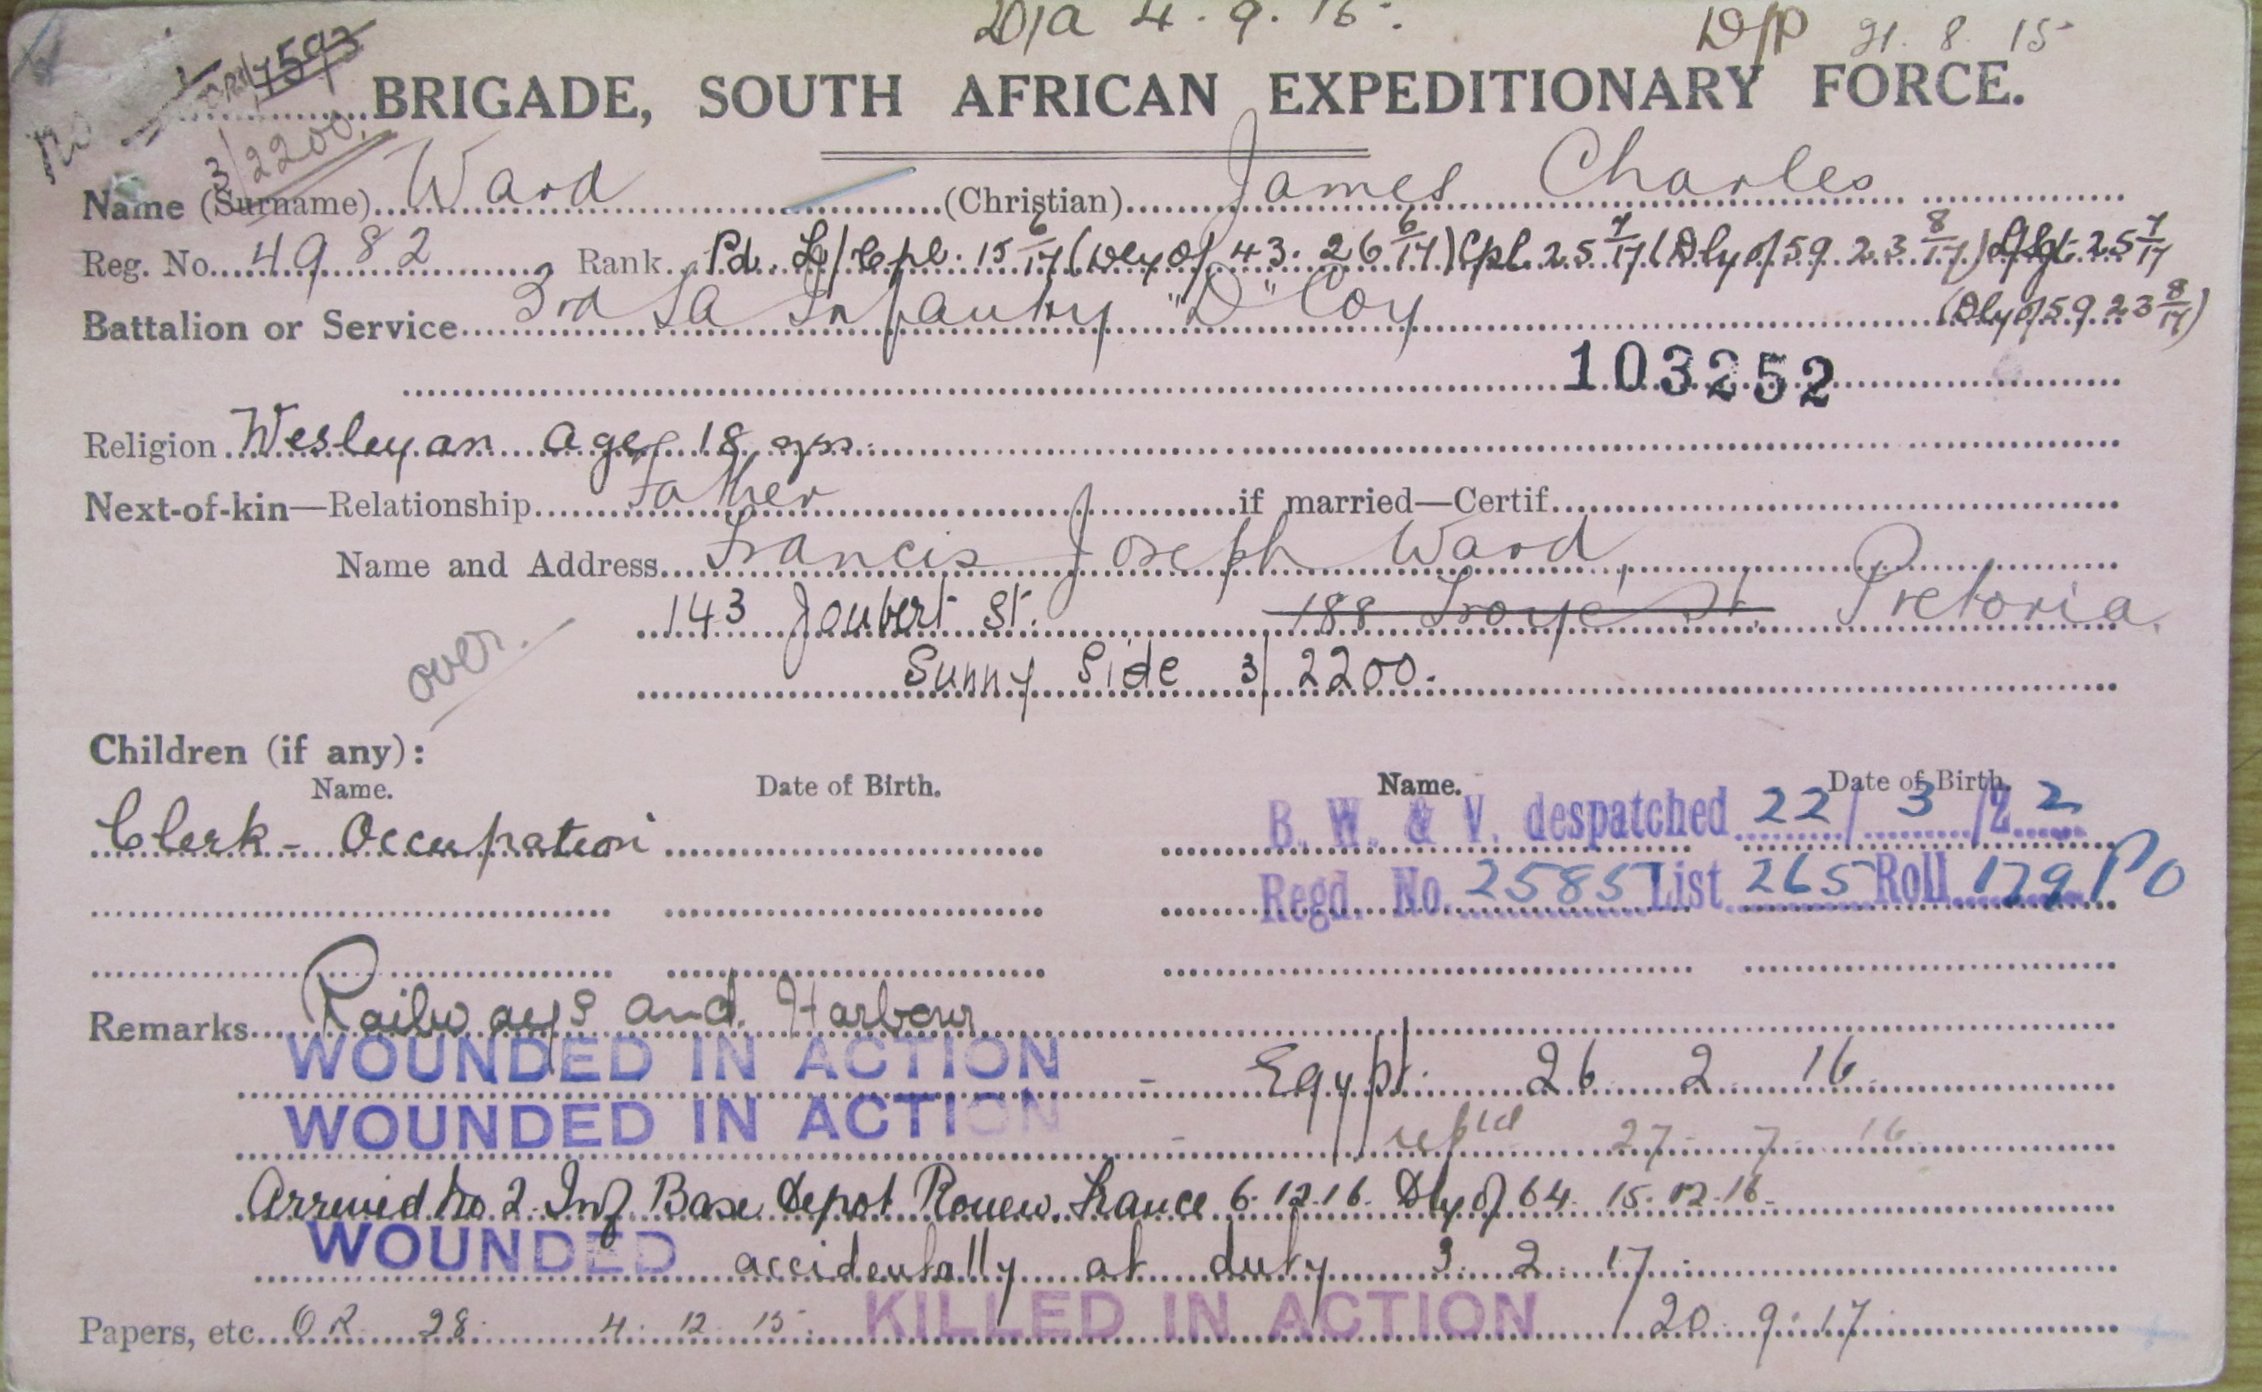 D/A 4. 9. 15. D/P 21. 8. 15
7593
BRIGADE, SOUTH AFRICAN EXPEDITIONARY FORCE.
3/2200.
Name (Surname) Ward (Christian) James Charles
Reg. No. 4982 Rank Pd. L/Cpl. 15 6/17 (Dly of 43. 26 6/17) Cpl. 25 7/17 (Dly of 59. 23 8/17) L/Sgt. 25 7/17
Battalion or Service 3rd SA Infantry "D" Coy (Dly of 59. 23 8/17)
103252
Religion Wesleyan age 18 yrs.
Next-of-kin—Relationship Father if married—Certif.
Name and Address Francis Joseph Ward,
143 Joubert St. 188 Troye St. Pretoria.
Sunny Side 3/2200.
over.
Children (if any):
Name. Date of Birth. Name. Date of Birth.
Clerk - Occupation B. W. & V. despatched 22/3/22
Regd. No. 25857 List 265 Roll 179 PO
Remarks Railways and Harbour
WOUNDED IN ACTION - Egypt. 26 2 16
WOUNDED IN ACTION - reptd 27 7 16
Arrived No 2 Inf Base Depot Rouen. France 6.12.16. Dly of 64. 15.12.16.
WOUNDED accidentally at duty 3. 2. 17.
Papers, etc. OR 28. 4. 12. 15. KILLED IN ACTION 20. 9. 17.